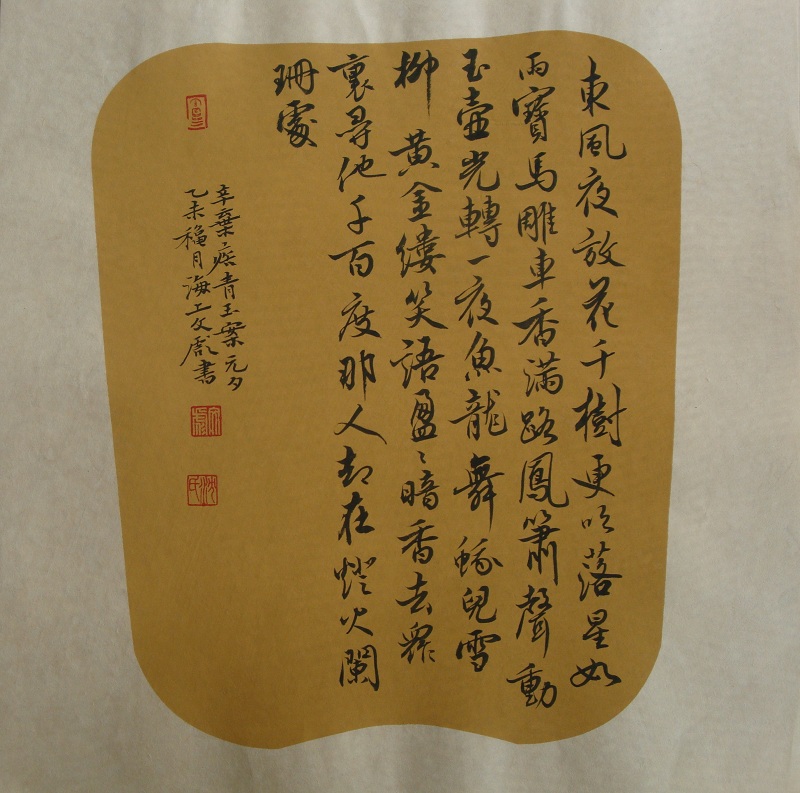 東風夜放花千樹更吹落星如
雨寶馬雕車香滿路鳳簫聲動
玉壺光轉一夜魚龍舞蛾兒雪
柳黃金縷笑語盈〻暗香去眾
裏尋他千百度那人却在燈火闌
珊處
辛棄疾青玉案元夕
乙未穐月海上文書